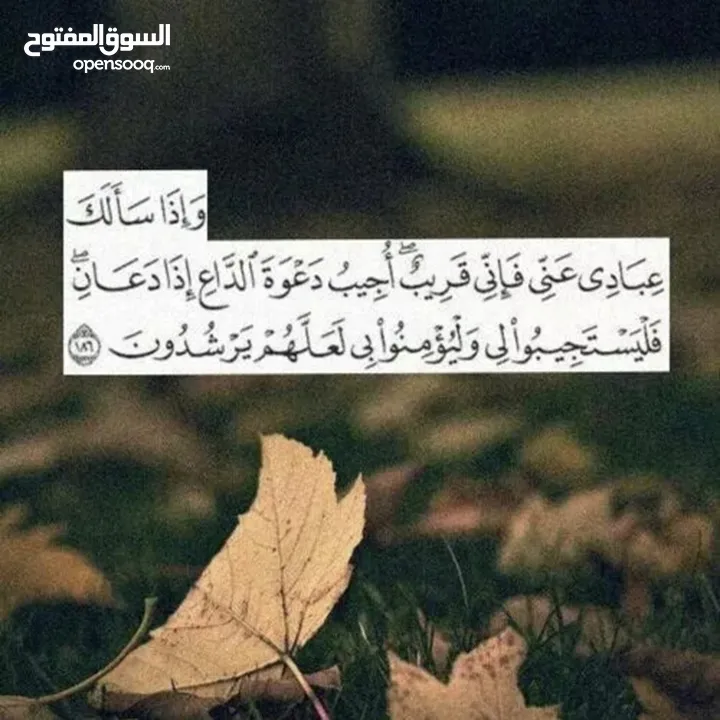 السوق المفتوح
opensooq.com
وَإِذَا سَأَلَكَ
عِبَادِى عَنِّى فَإِنِّى قَرِيبٌ ۖ أُجِيبُ دَعْوَةَ ٱلدَّاعِ إِذَا دَعَانِ ۖ
فَلْيَسْتَجِيبُوا۟ لِى وَلْيُؤْمِنُوا۟ بِى لَعَلَّهُمْ يَرْشُدُونَ ١٨٦